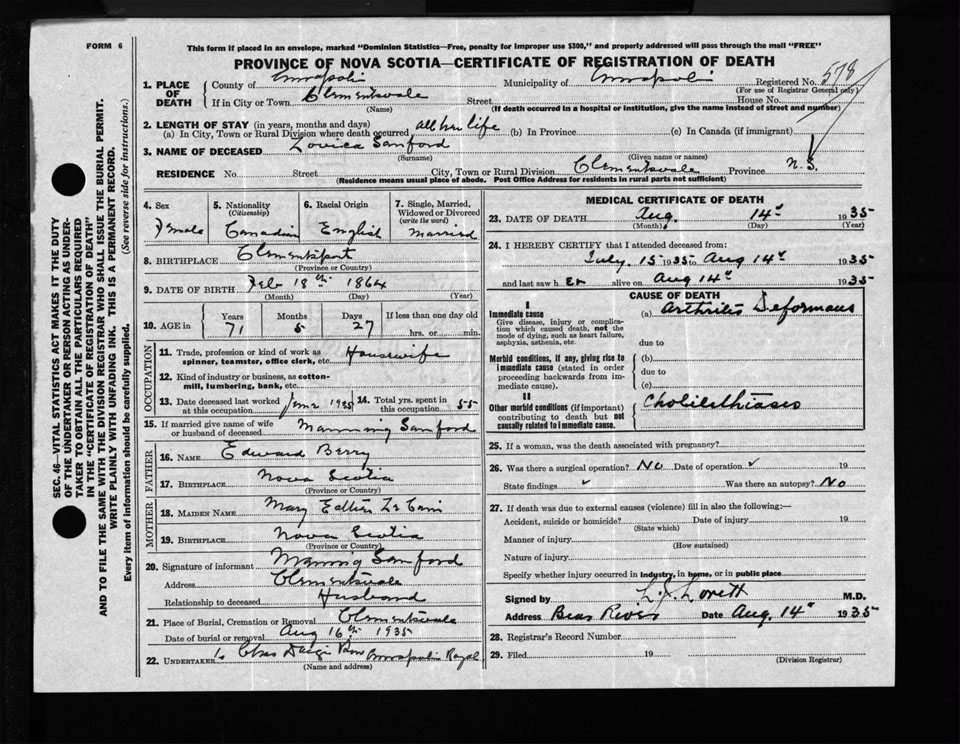 FORM 6
This form if placed in an envelope, marked "Dominion Statistics—Free, penalty for improper use $300," and properly addressed will pass through the mail "FREE"
PROVINCE OF NOVA SCOTIA—CERTIFICATE OF REGISTRATION OF DEATH
SEC. 46—VITAL STATISTICS ACT MAKES IT THE DUTY
OF THE UNDERTAKER OR PERSON ACTING AS UNDER-
TAKER TO OBTAIN ALL THE PARTICULARS REQUIRED
IN THE "CERTIFICATE OF REGISTRATION OF DEATH"
AND TO FILE THE SAME WITH THE DIVISION REGISTRAR WHO SHALL ISSUE THE BURIAL PERMIT.
WRITE PLAINLY WITH UNFADING INK. THIS IS A PERMANENT RECORD.
Every item of information should be carefully supplied. (See reverse side for instructions.)
1. PLACE OF DEATH County of Annapolis Municipality of Annapolis Registered No. 578
(For use of Registrar General only)
If in City or Town Clementsvale Street House No.
(Name) (If death occurred in a hospital or institution, give the name instead of street and number)
2. LENGTH OF STAY (in years, months and days)
(a) In City, Town or Rural Division where death occurred all her life (b) In Province (c) In Canada (if immigrant)
3. NAME OF DECEASED Lovica Sanford
(Surname) (Given name or names)
RESIDENCE No. Street City, Town or Rural Division Clementsvale Province N.S.
(Residence means usual place of abode. Post Office Address for residents in rural parts not sufficient)
4. Sex 5. Nationality (Citizenship) 6. Racial Origin 7. Single, Married, Widowed or Divorced (write the word)
Female Canadian English Married
8. BIRTHPLACE Clementsport
(Province or Country)
9. DATE OF BIRTH Feb 18th 1864
(Month) (Day) (Year)
10. AGE in Years Months Days If less than one day old
71 5 27 hrs. or min.
OCCUPATION
11. Trade, profession or kind of work as spinner, teamster, office clerk, etc. Housewife
12. Kind of industry or business, as cotton-mill, lumbering, bank, etc.
13. Date deceased last worked at this occupation June 1935 14. Total yrs. spent in this occupation 55
15. If married give name of wife or husband of deceased Manning Sanford
FATHER
16. NAME Edward Berry
17. BIRTHPLACE Nova Scotia
(Province or Country)
MOTHER
18. MAIDEN NAME Mary Esther Le Cain
19. BIRTHPLACE Nova Scotia
(Province or Country)
20. Signature of informant Manning Sanford
Address Clementsvale
Relationship to deceased Husband
21. Place of Burial, Cremation or Removal Clementsvale
Date of burial or removal Aug 16th 1935
22. UNDERTAKER Chas Annapolis Royal
(Name and address)
MEDICAL CERTIFICATE OF DEATH
23. DATE OF DEATH Aug. 14th 1935
(Month) (Day) (Year)
24. I HEREBY CERTIFY that I attended deceased from:
July. 15 1935 to Aug 14th 1935
and last saw her alive on Aug 14th 1935
CAUSE OF DEATH
I
Immediate cause (a) Arthritis Deformans
Give disease, injury or complication which caused death, not the mode of dying, such as heart failure, asphyxia, asthenia, etc.
due to
Morbid conditions, if any, giving rise to immediate cause (stated in order proceeding backwards from immediate cause).
(b)
due to
(c)
II
Other morbid conditions (if important) contributing to death but not causally related to immediate cause. Cholilithiases
25. If a woman, was the death associated with pregnancy?
26. Was there a surgical operation? No Date of operation ✓ 19
State findings ✓ Was there an autopsy? No
27. If death was due to external causes (violence) fill in also the following:—
Accident, suicide or homicide? Date of injury 19
(State which)
Manner of injury
(How sustained)
Nature of injury
Specify whether injury occurred in industry, in home, or in public place
Signed by L. J. Lovett M.D.
Address Bear River Date Aug. 14th 1935
28. Registrar's Record Number
29. Filed 19
(Division Registrar)